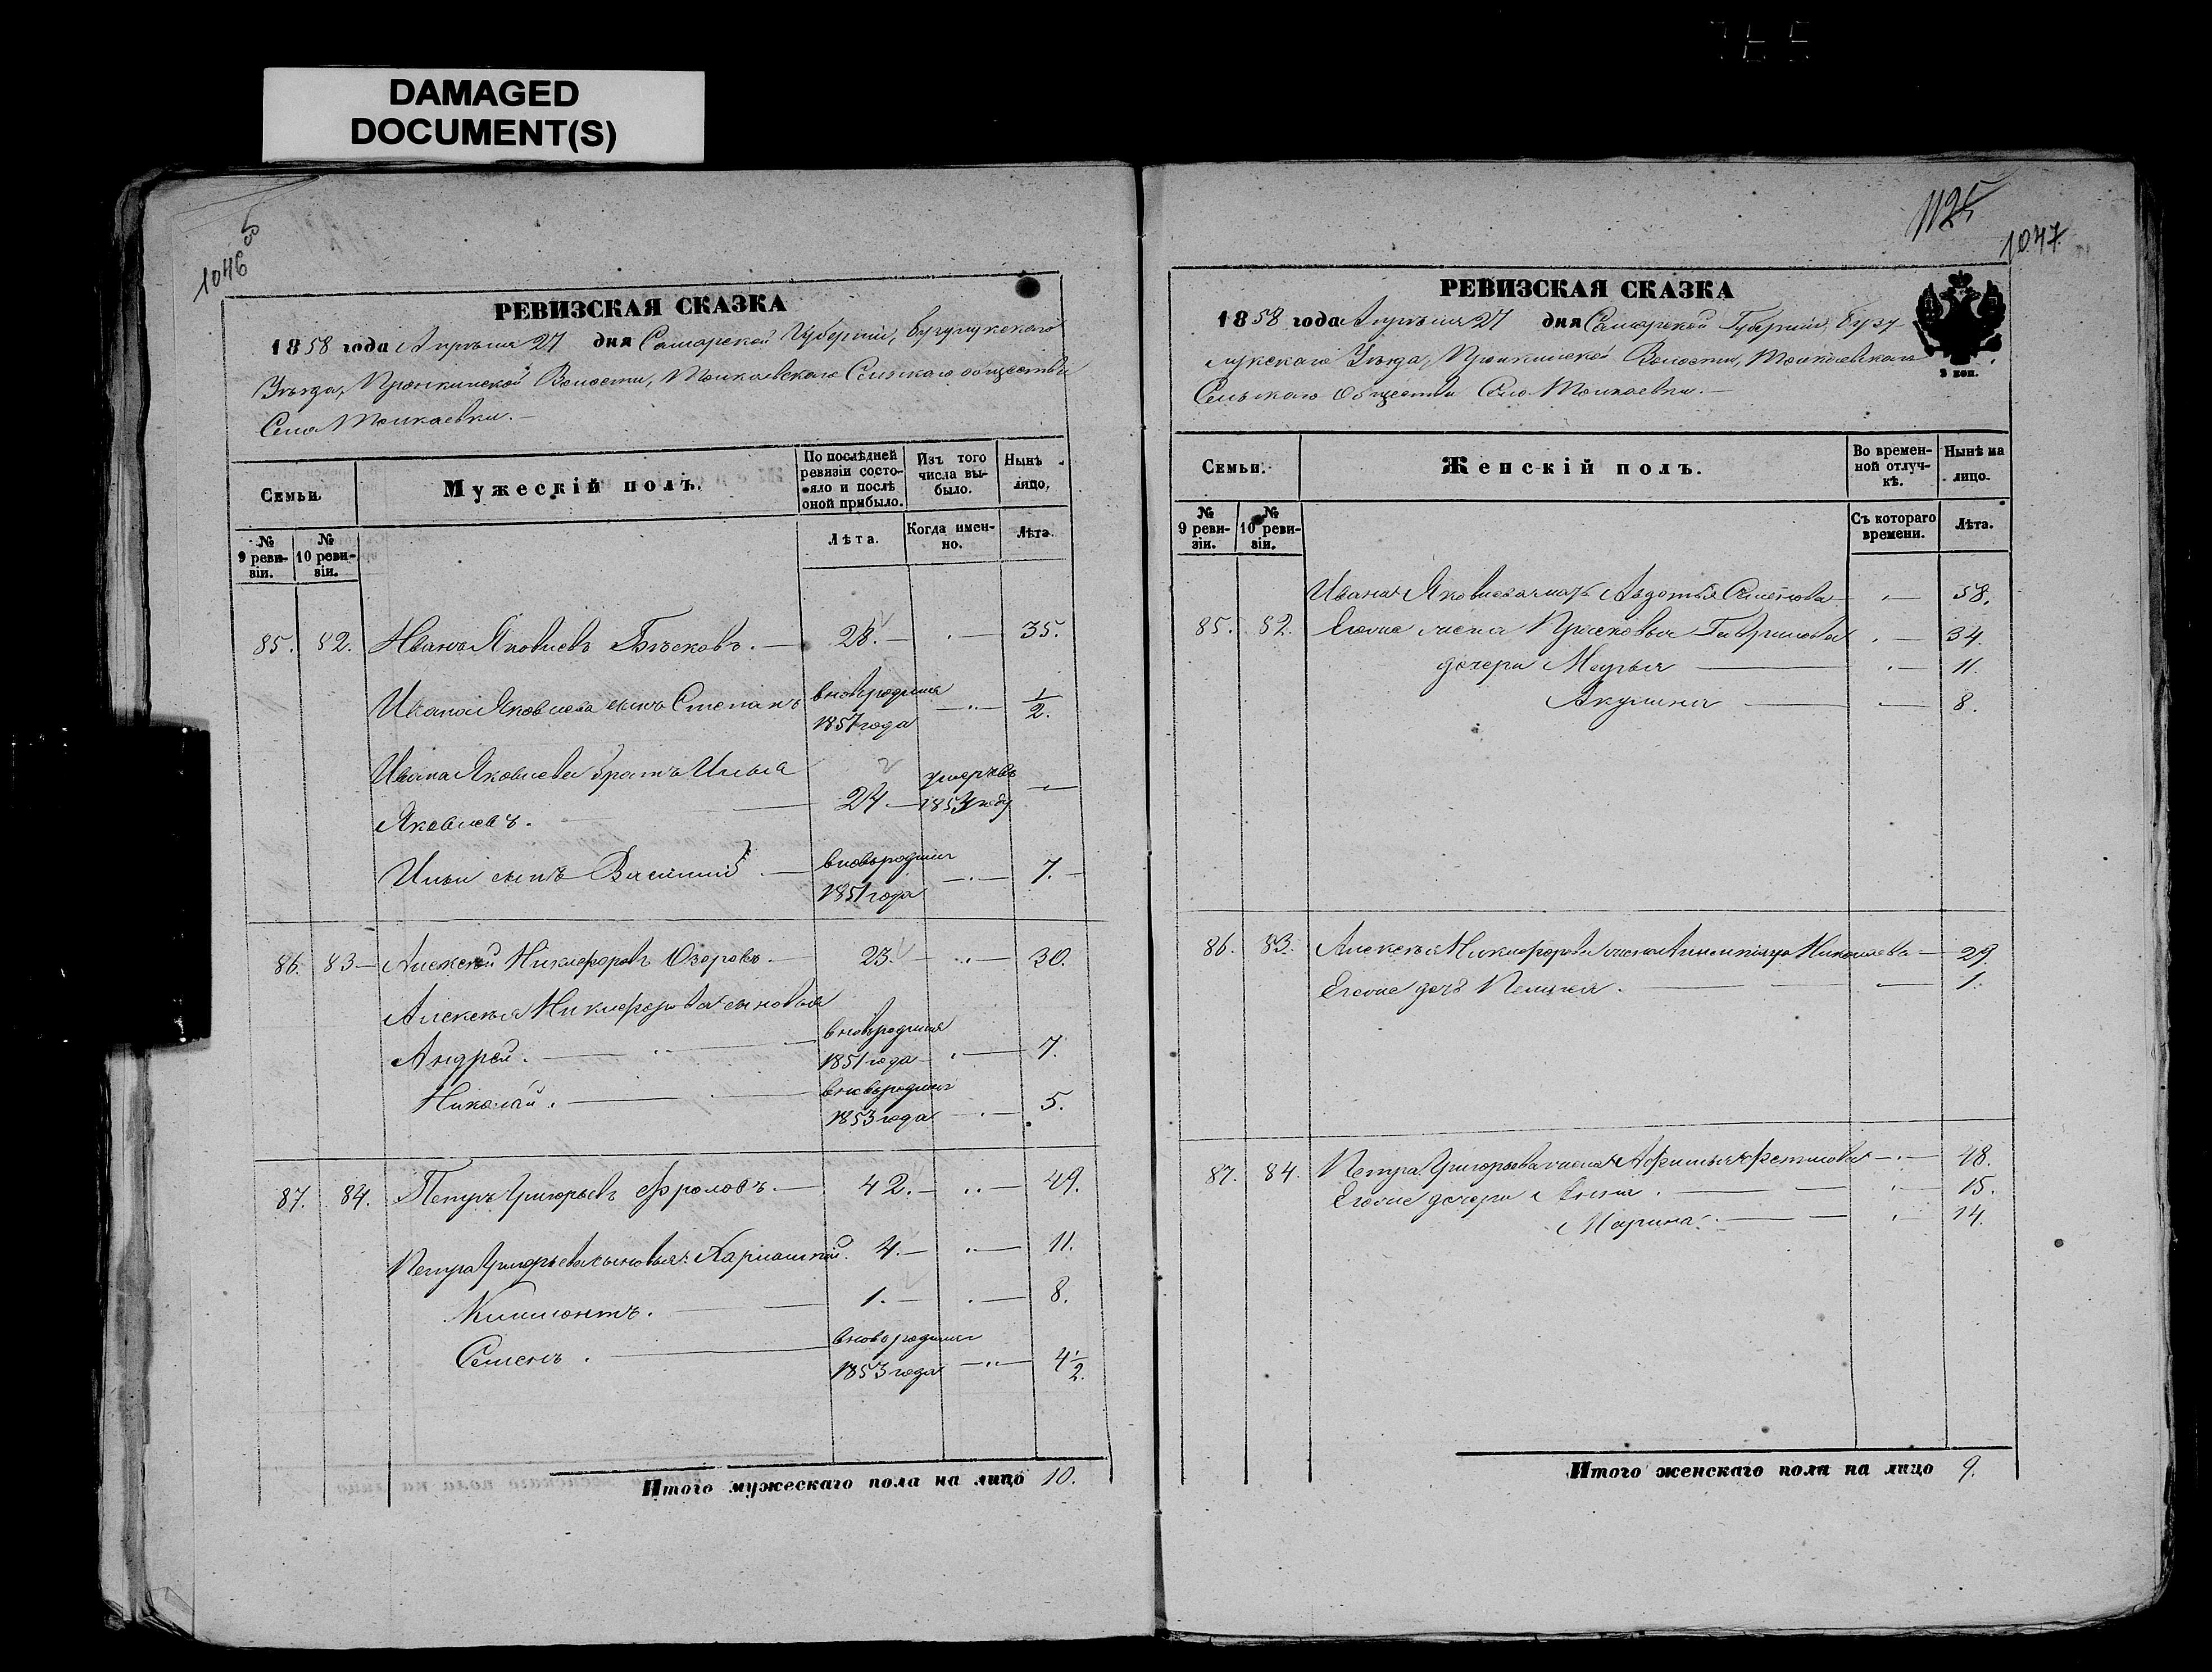 DAMAGED
DOCUMENT(S)
1046
РЕВИЗСКАЯ СКАЗКА
1858 года Апрѣля 27 дня Самарской Губерніи, Бузулукскаго
Уѣзда, Пронкинской Волости, Толкаевскаго Сельскаго общества
Села Толкаевки.
Семьи.
Мужескій полъ.
По послѣдней ревизіи состояло и послѣ оной прибыло.
Изъ того числа выбыло.
Нынѣ лицо.
№ 9 ревизіи.
№ 10 ревизіи.
Лѣта.
Когда именно.
Лѣта.
85. 82. Иванъ Яковлевъ 28. 35.
Ивана Яковлева сынъ Степанъ вновьрожден 1857 года 1/2.
Ивана Яковлева братъ Илья
Яковлевъ. 24 умеръ въ 1853 году
Ильи сынъ Василий вновьрожден 1851 года 7.
86. 83 Алексѣй Никифоровъ Озеровъ. 23. 30.
Алексѣя Никифорова сыновья
Андрей. вновьрожден 1851 года 7.
Николай. вновьрожден 1853 года 5.
87. 84. Петръ Григорьевъ Фроловъ. 42. 49.
Петра Григорьева сыновья: 4. 11.
1. 8.
Семенъ. вновьрожден 1853 года 4 1/2.
Итого мужескаго пола на лицо 10.
1125
1047
РЕВИЗСКАЯ СКАЗКА
1858 года Апрѣля 27 дня Самарской Губерніи, Бузу-
лукскаго Уѣзда, Пронкинской Волости, Толкаевскаго
Сельскаго Общества Села Толкаевки.
3 коп.
Семьи.
Женскій полъ.
Во временной отлучкѣ.
Нынѣ на лицо.
№ 9 ревизіи.
№ 10 ревизіи.
Съ котораго времени.
Лѣта.
Ивана Яковлева мать Авдотья Семенова 58.
85. 82. Егоже жена Прасковья Гаврилова 34.
дочери Марья 11.
Акулина 8.
86. 83. Алексѣя Никифорова жена Николаева 29.
Егоже дочь 1.
87. 84. Петра Григорьева жена 48.
Егоже дочери Анна. 15.
Марина. 14.
Итого женскаго пола на лицо 9.